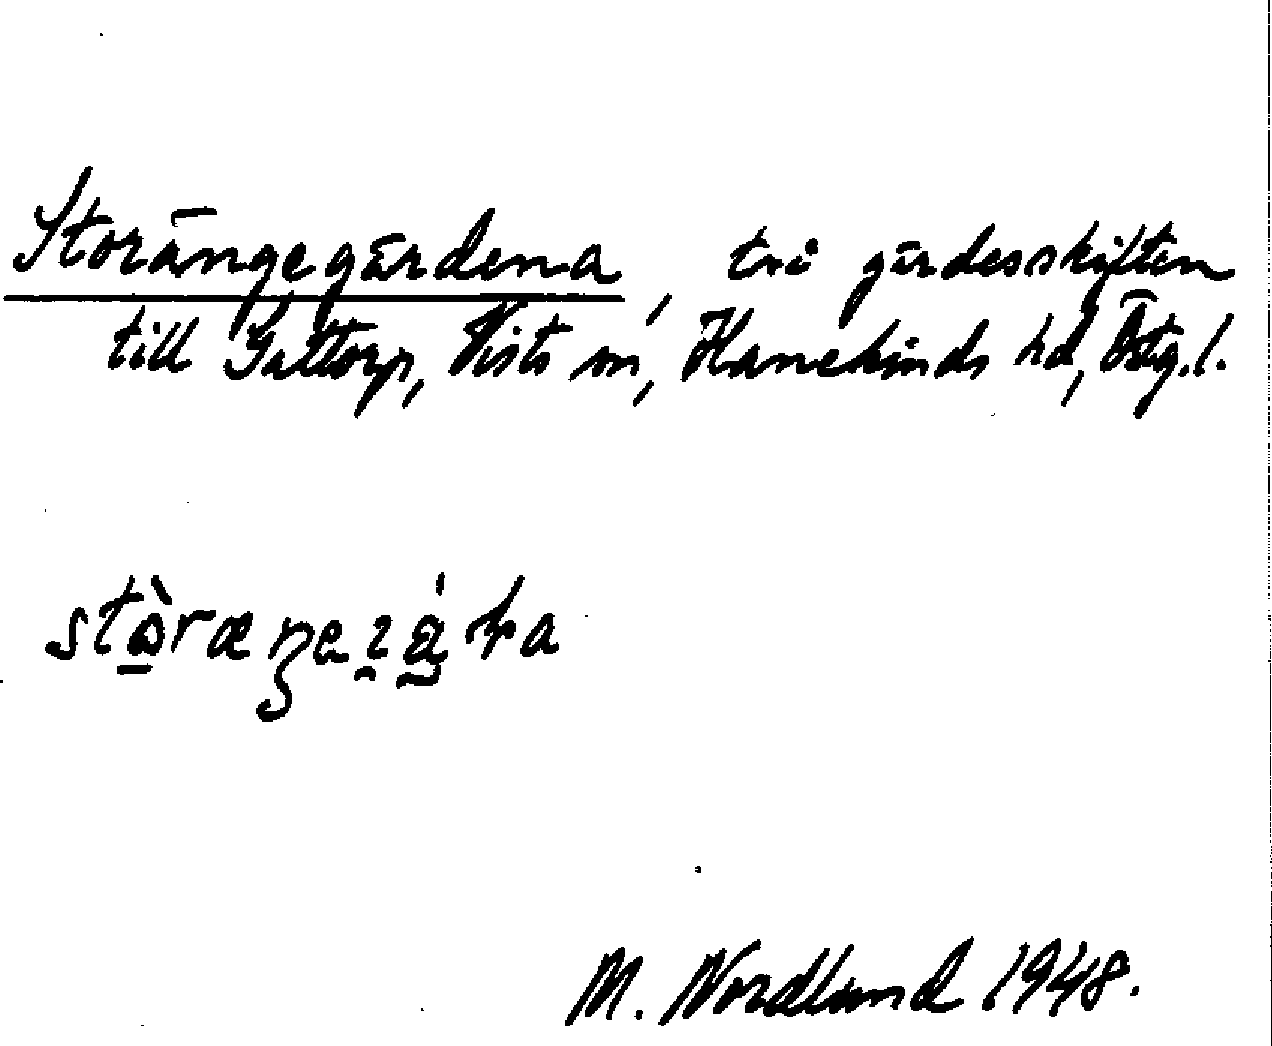 Storängegärdena, tre gärdesskiften
till Gattorp, Vists sn, Hanekinds hd, Östg.l.
M. Nordlund 1948.